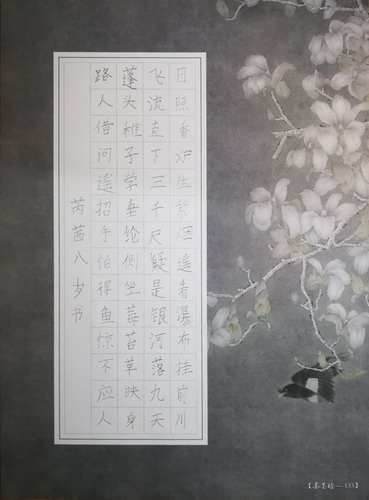 日照香炉生紫烟遥看瀑布挂前川
飞流直下三千尺疑是银河落九天
蓬头稚子学垂纶侧坐莓苔草映身
路人借问遥招手怕得鱼惊不应人
芮茜八岁书